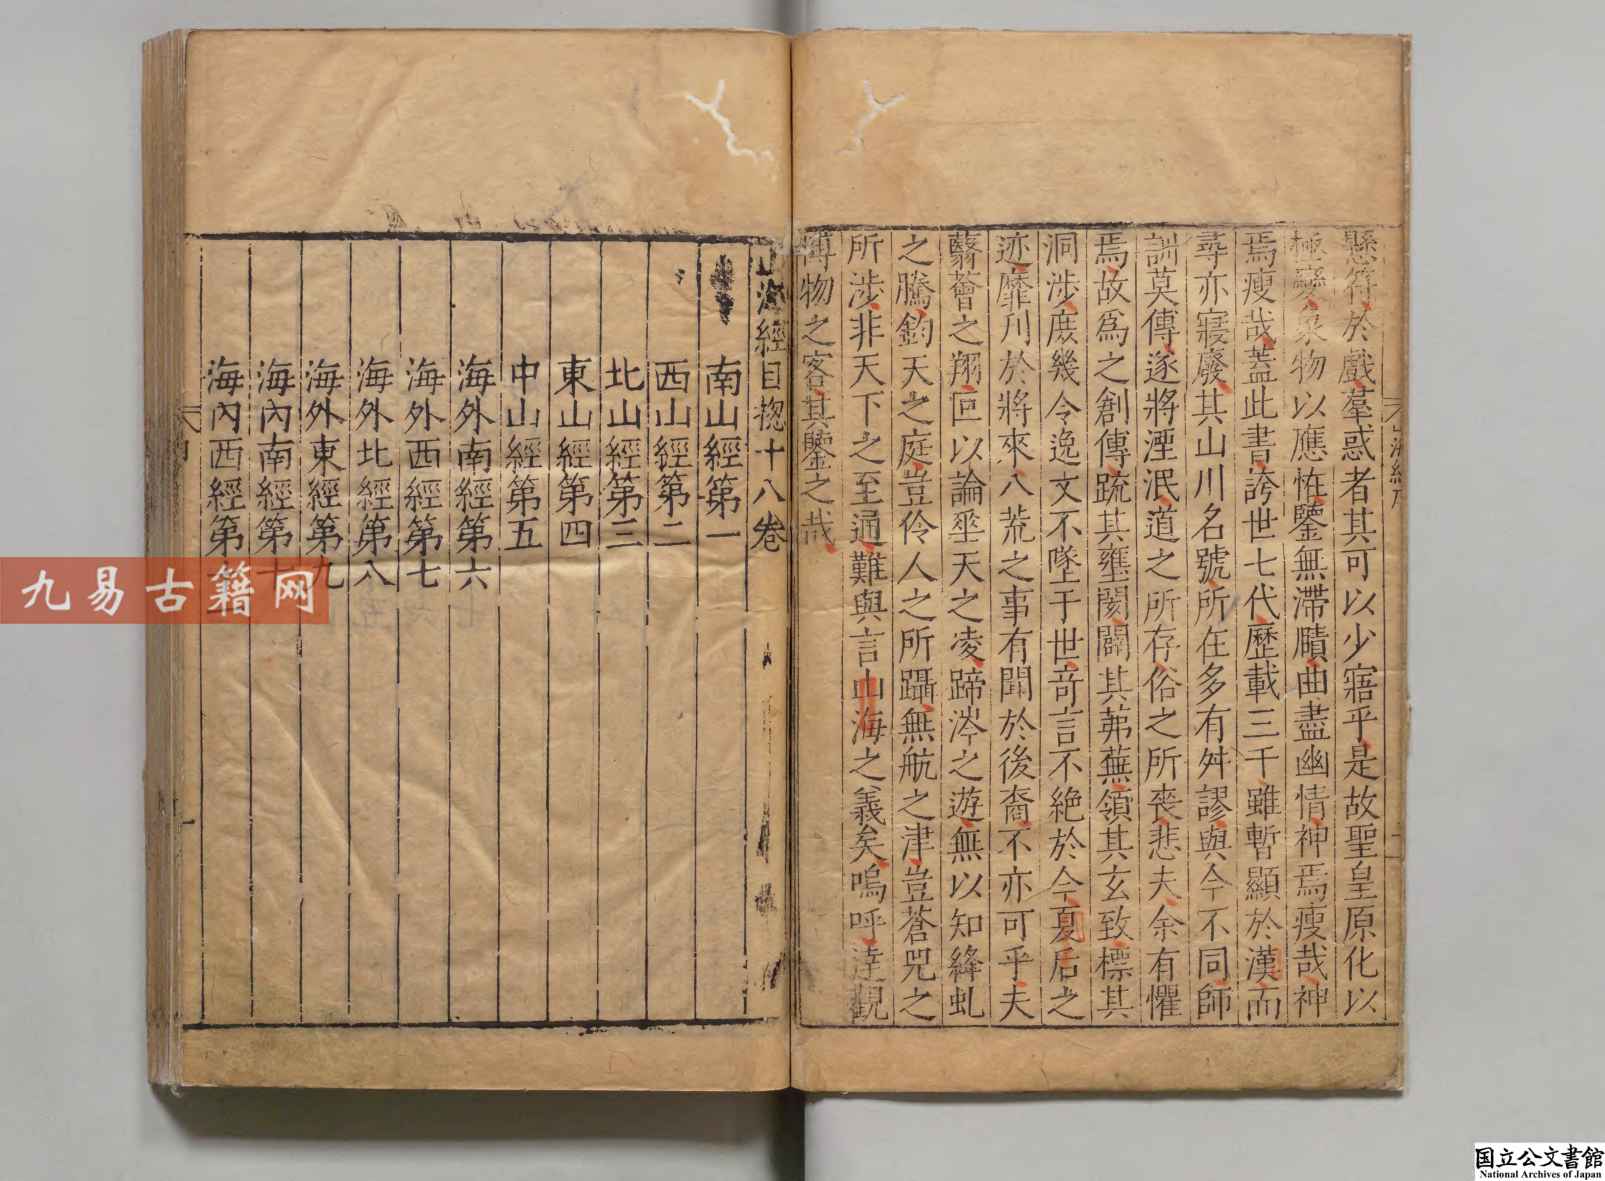 懸符於戲羣惑者其可以少寤乎是故聖皇原化以
極變象物以應怪鑒無滯賾曲盡幽情神焉廋哉神
焉廋哉蓋此書誇世七代歷載三千雖暫顯於漢而
尋亦寢廢其山川名號所在多有舛謬與今不同師
訓莫傳遂將湮泯道之所存俗之所喪悲夫余有懼
焉故爲之創傳疏其壅閡闢其茀蕪領其玄致標其
洞涉庶幾令逸文不墜于世奇言不絶於今夏后之
迹靡刋於將來八荒之事有聞於後裔不亦可乎夫
蘙薈之翔叵以論垂天之凌蹄涔之遊無以知絳虬
之騰鈞天之庭豈伶人之所躡無航之津豈蒼兕之
所涉非天下之至通難與言山海之義矣嗚呼逹觀
博物之客其鑒之哉
山海經目揔十八卷
南山經第一
西山經第二
北山經第三
東山經第四
中山經第五
海外南經第六
海外西經第七
海外北經第八
海外東經第九
海內南經第十
海內西經第
九易古籍网
国立公文書館
National Archives of Japan